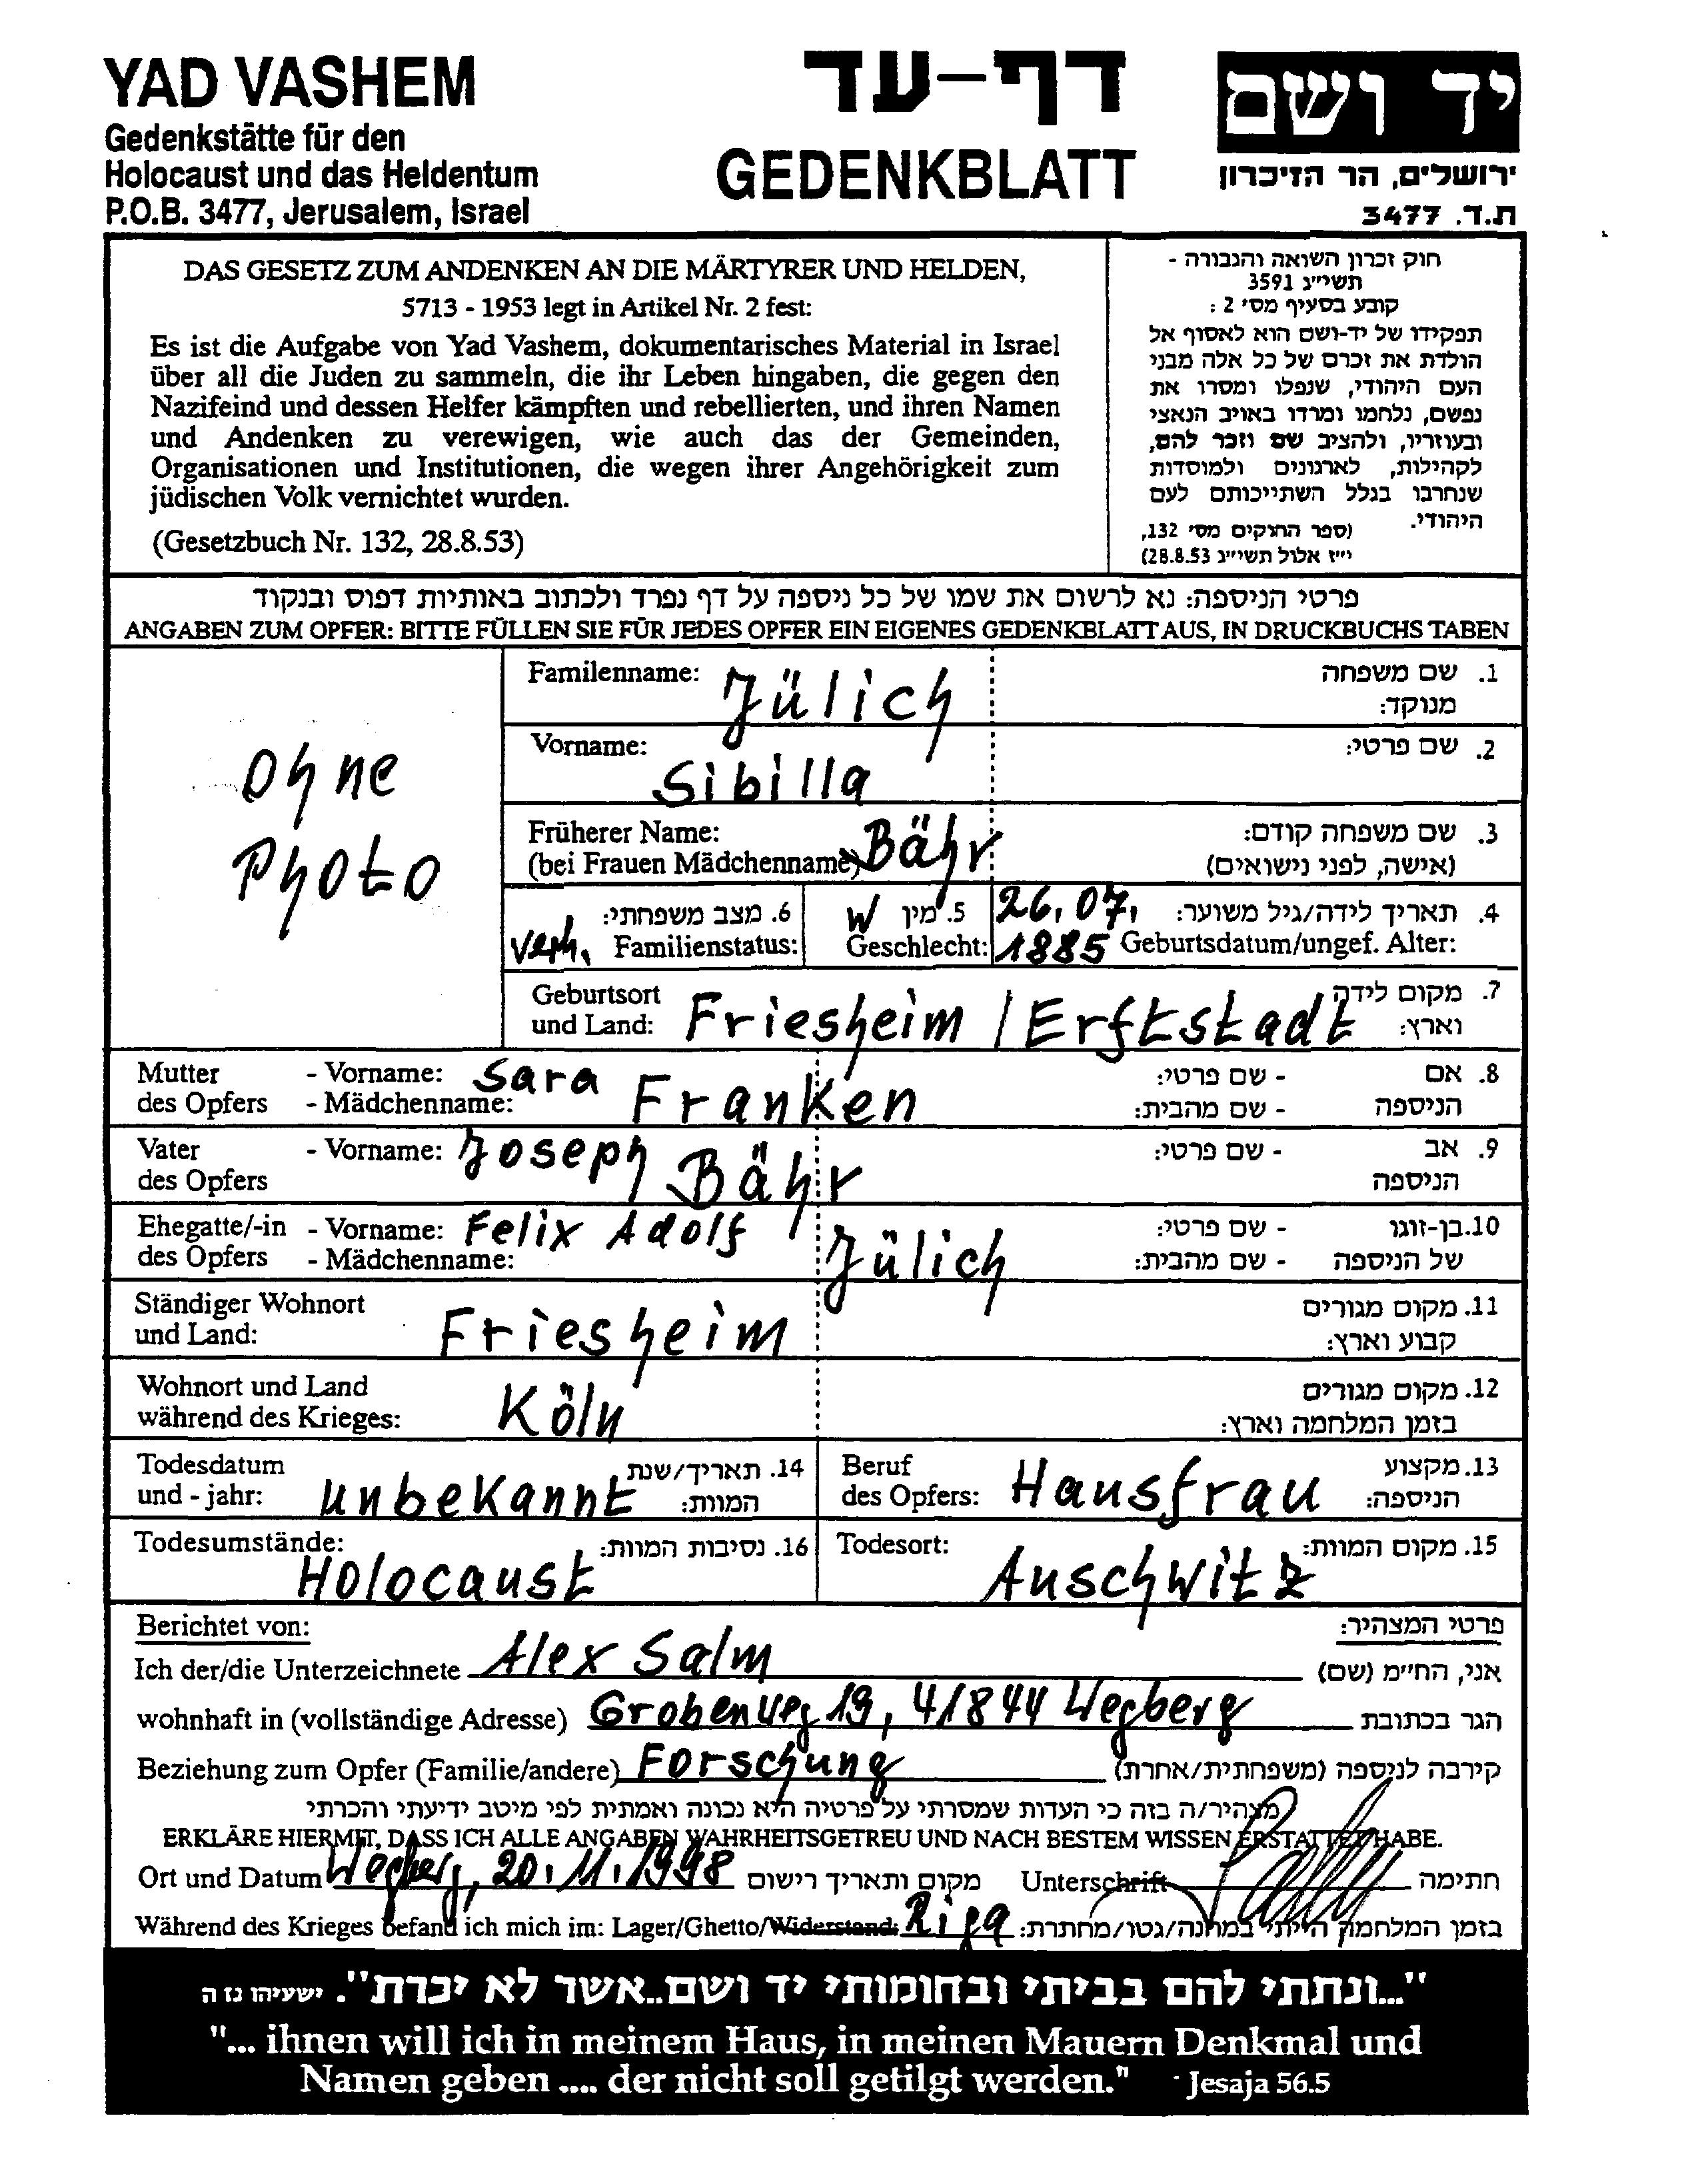 YAD VASHEM
Gedenkstätte für den
Holocaust und das Heldentum
P.O.B. 3477, Jerusalem, Israel
דף-עד
GEDENKBLATT
יד ושם
ירושלים, הר הזיכרון
ת.ד. 3477
DAS GESETZ ZUM ANDENKEN AN DIE MÄRTYRER UND HELDEN,
5713 - 1953 legt in Artikel Nr. 2 fest:
Es ist die Aufgabe von Yad Vashem, dokumentarisches Material in Israel
über all die Juden zu sammeln, die ihr Leben hingaben, die gegen den
Nazifeind und dessen Helfer kämpften und rebellierten, und ihren Namen
und Andenken zu verewigen, wie auch das der Gemeinden,
Organisationen und Institutionen, die wegen ihrer Angehörigkeit zum
jüdischen Volk vernichtet wurden.
(Gesetzbuch Nr. 132, 28.8.53)
חוק זכרון השואה והגבורה -
תשי"ג 3591
קובע בסעיף מס' 2 :
תפקידו של יד-ושם הוא לאסוף אל
הולדת את זכרם של כל אלה מבני
העם היהודי, שנפלו ומסרו את
נפשם, נלחמו ומרדו באויב הנאצי
ובעוזריו, ולהציב שם וזכר להם,
לקהילות, לארגונים ולמוסדות
שנחרבו בגלל השתייכותם לעם
היהודי.
(ספר החוקים מס' 132,
י"ז אלול תשי"ג 28.8.53)
פרטי הניספה: נא לרשום את שמו של כל ניספה על דף נפרד ולכתוב באותיות דפוס ובנקוד
ANGABEN ZUM OPFER: BITTE FÜLLEN SIE FÜR JEDES OPFER EIN EIGENES GEDENKBLATT AUS, IN DRUCKBUCHS TABEN
Ohne
Photo
Familenname: Jülich 1. שם משפחה
מנוקד:
Vorname: Sibilla 2. שם פרטי:
Früherer Name: 3. שם משפחה קודם:
(bei Frauen Mädchenname) Bähr (אישה, לפני נישואים)
6. מצב משפחתי: w 5. מין 26.07. 4. תאריך לידה/גיל משוער:
verh. Familienstatus: Geschlecht: 1885 Geburtsdatum/ungef. Alter:
Geburtsort 7. מקום לידה
und Land: Friesheim / Erftstadt וארץ:
Mutter - Vorname: Sara - שם פרטי: 8. אם
des Opfers - Mädchenname: Franken - שם מהבית: הניספה
Vater - Vorname: Joseph Bähr - שם פרטי: 9. אב
des Opfers הניספה
Ehegatte/-in - Vorname: Felix Adolf - שם פרטי: 10.בן-זוגו
des Opfers - Mädchenname: Jülich - שם מהבית: של הניספה
Ständiger Wohnort 11. מקום מגורים
und Land: Friesheim קבוע וארץ:
Wohnort und Land 12. מקום מגורים
während des Krieges: Köln בזמן המלחמה וארץ:
Todesdatum 14. תאריך/שנת Beruf 13.מקצוע
und - jahr: unbekannt המוות: des Opfers: Hausfrau הניספה:
Todesumstände: 16. נסיבות המוות: Todesort: 15. מקום המוות:
Holocaust Auschwitz
Berichtet von: פרטי המצהיר:
Ich der/die Unterzeichnete Alex Salm אני, החי"מ (שם)
wohnhaft in (vollständige Adresse) Grobenweg 19, 41844 Wegberg הגר בכתובת
Beziehung zum Opfer (Familie/andere) Forschung קירבה לניספה (משפחתית/אחרת)
מצהיר/ה בזה כי העדות שמסרתי על פרטיה היא נכונה ואמתית לפי מיטב ידיעתי והכרתי
ERKLÄRE HIERMIT, DASS ICH ALLE ANGABEN WAHRHEITSGETREU UND NACH BESTEM WISSEN ERSTATTET HABE.
Ort und Datum Wegberg, 20.11.1998 מקום ותאריך רישום Unterschrift חתימה
Während des Krieges befand ich mich im: Lager/Ghetto/Widerstand: Riga בזמן המלחמה הייתי במחנה/גטו/מחתרת:
"...ונתתי להם בביתי ובחומותי יד ושם..אשר לא יכרת". ישעיהו נז ה
"... ihnen will ich in meinem Haus, in meinen Mauern Denkmal und
Namen geben .... der nicht soll getilgt werden." - Jesaja 56.5